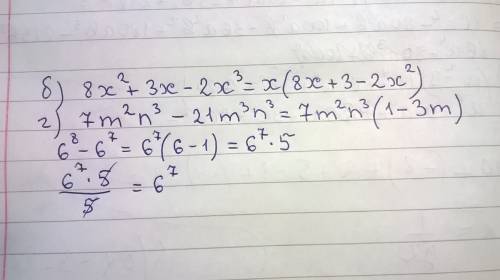 б) 8x² + 3x - 2x³ = x(8x + 3 - 2x²)
г) 7m²n³ - 21m³n³ = 7m²n³(1 - 3m)
6⁸ - 6⁷ = 6⁷(6 - 1) = 6⁷ · 5
6⁷ · 5 / 5 = 6⁷